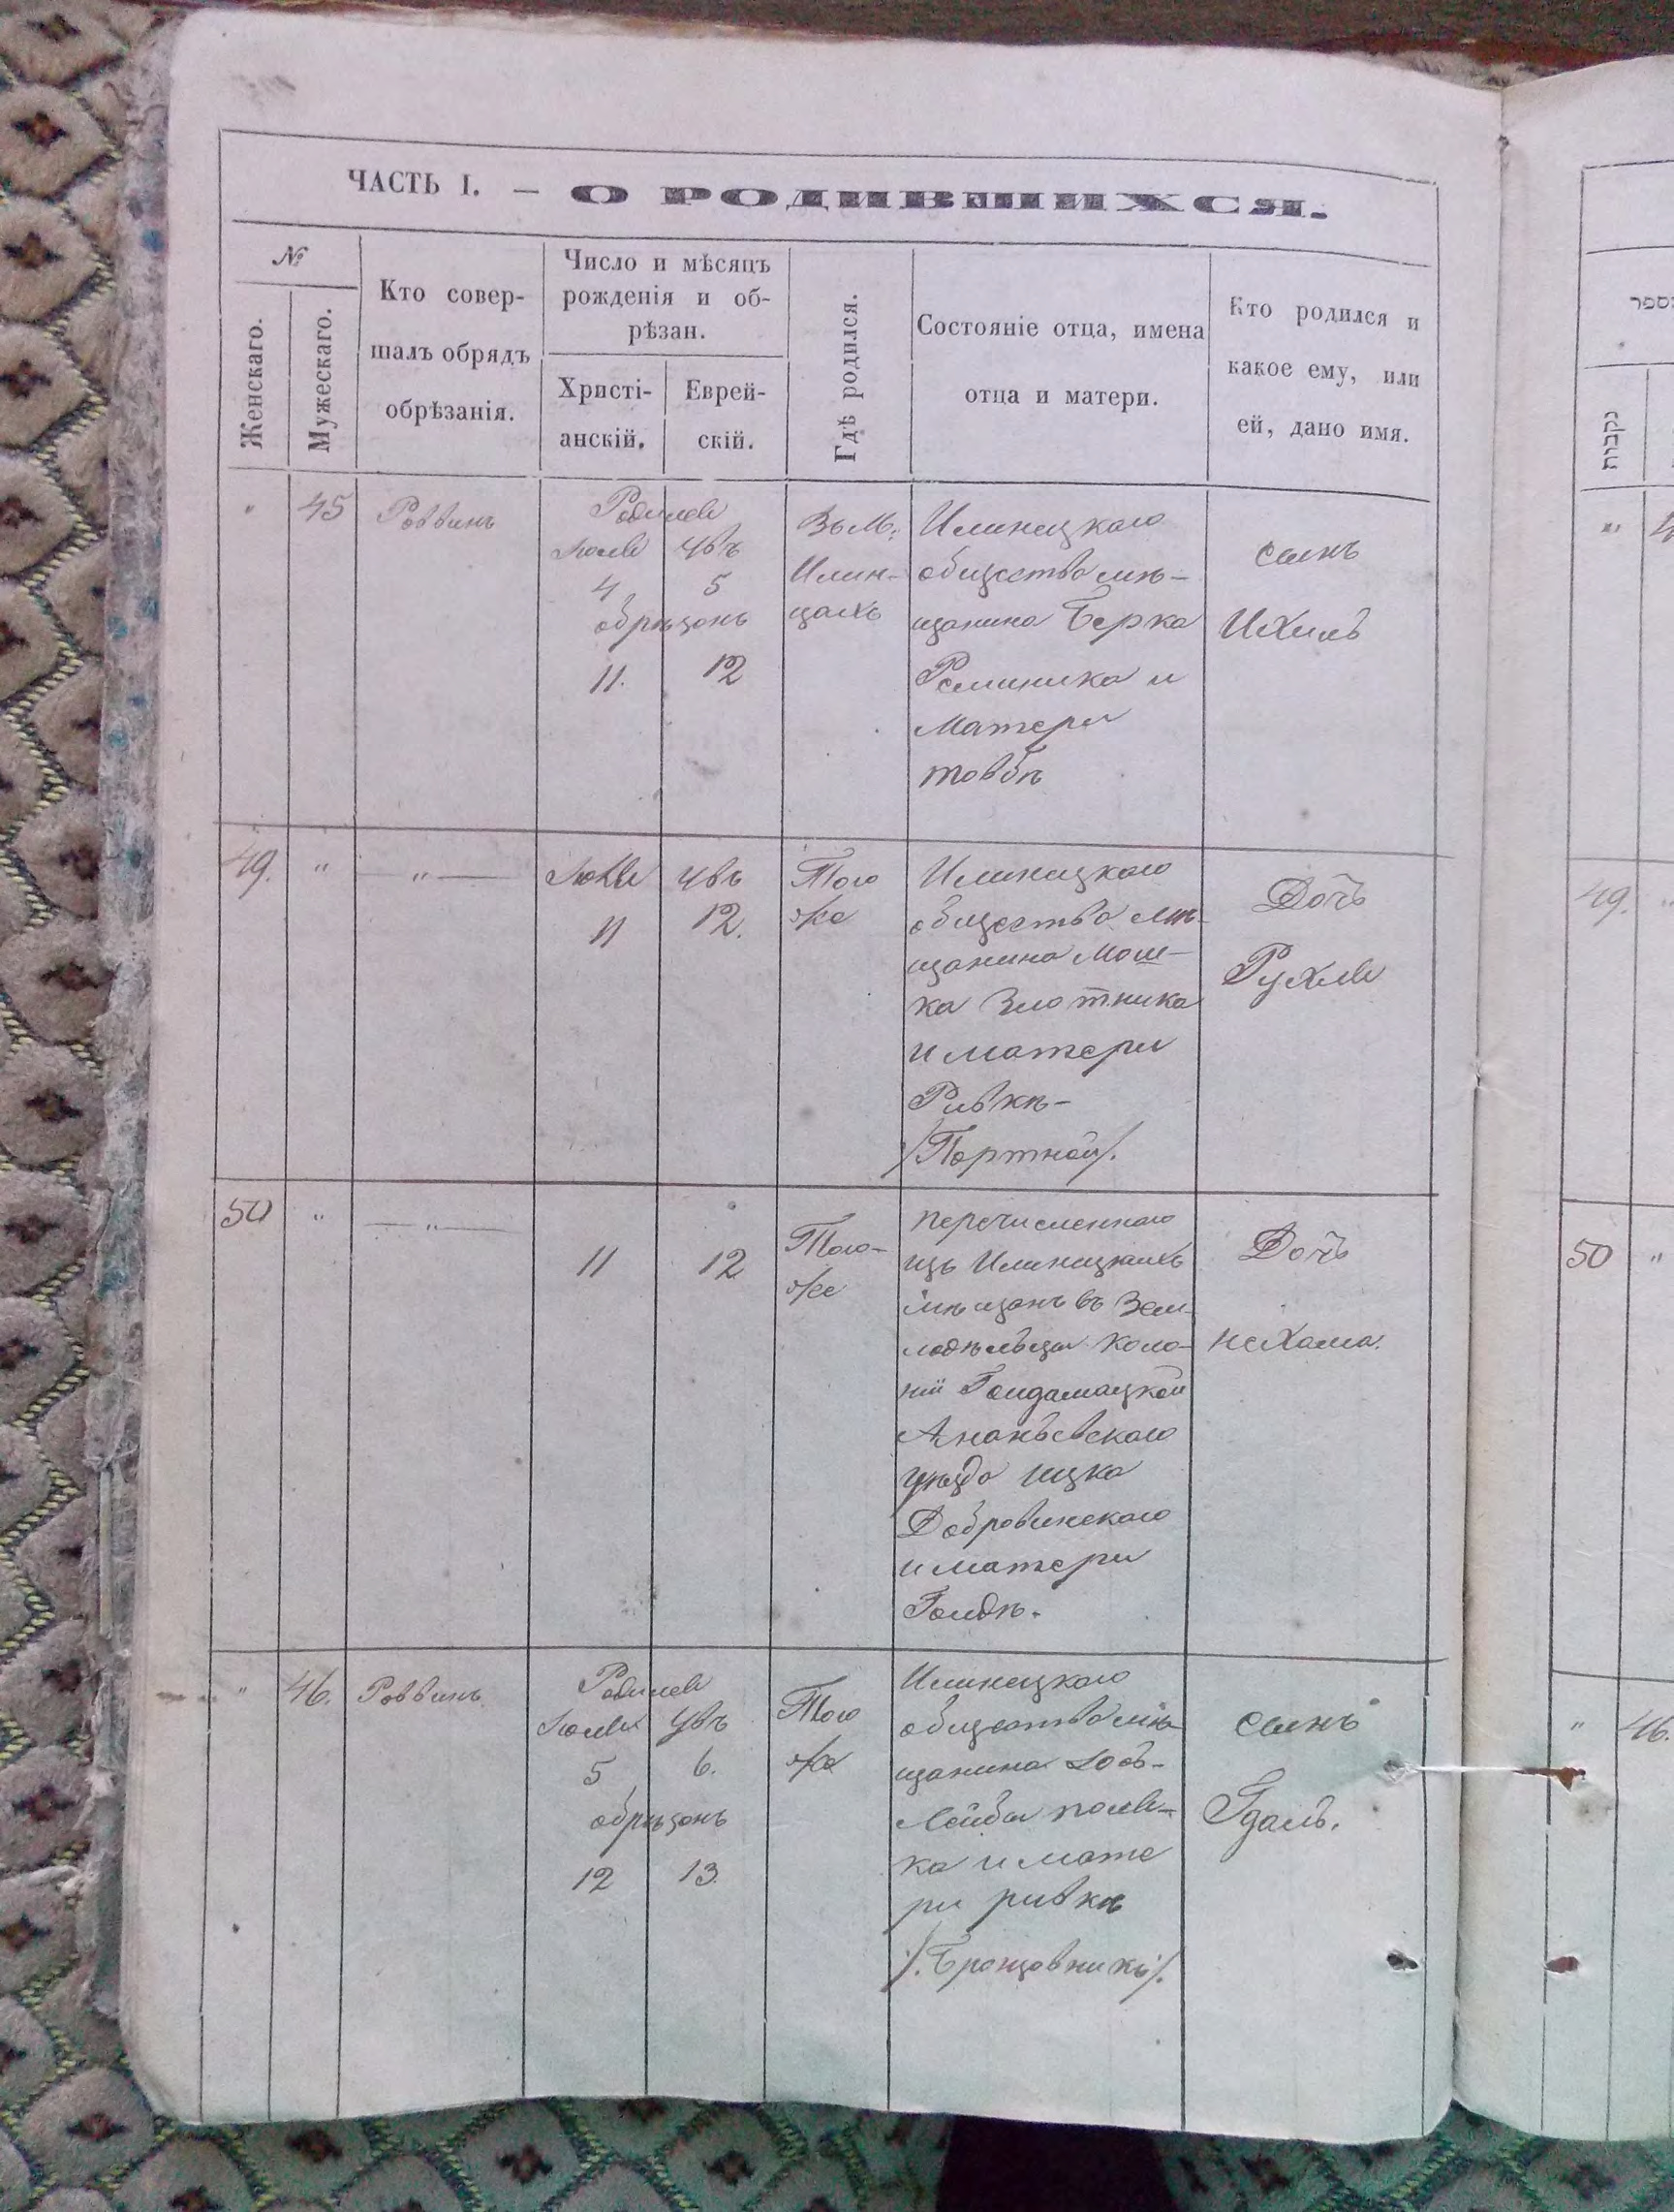 ЧАСТЬ I. — О РОДИВШИХСЯ.
№
Женскаго.
Мужескаго.
Кто совер-
шалъ обрядъ
обрѣзанія.
Число и мѣсяцъ
рожденія и об-
рѣзан.
Христі-
анскій.
Еврей-
скій.
Гдѣ родился.
Состояніе отца, имена
отца и матери.
Кто родился и
какое ему, или
ей, дано имя.
" 45 Раввинъ
Родился
Іюля
4 5
обрѣзанъ
11. 12
Въ М.
Илин-
цахъ
Илинецкаго
общества мѣ-
щанина Берка
и
матери
Товбѣ
сынъ
Ихилъ
49. " — " —
11 12.
Того
же
Илинецкаго
общества мѣ-
щанина Мош-
ка Злотника
и матери
Ривкѣ —
/Портной/.
Дочь
Рухля
50 " — " —
11 12
Того-
же
перечисленнаго
изъ Илинецкихъ
мѣщанъ въ Зем-
ледѣльцы коло-
ніи Гайдамацкой
Ананьевскаго
уѣзда Ицка
Добровинскаго
и матери
Голдѣ.
Дочь
Нехама.
" 46. Раввинъ
Родился
Іюля
5 6.
обрѣзанъ
12 13.
Того
же
Илинецкаго
общества мѣ-
щанина Іось-
Лейбы
ка и мате
ри Ривкѣ
сынъ
Гдаль.
הספר
נקבות
"
49.
50 "
" 46.